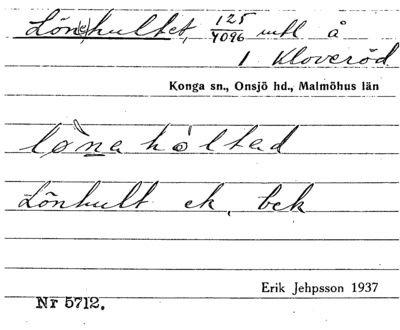 Lön(e)hultet, 125/4096 mtl å
1 Kloveröd
Konga sn., Onsjö hd., Malmöhus län
lø̀na hóltad
Lönhult ek. bek
Erik Jehpsson 1937
Nr 5712.